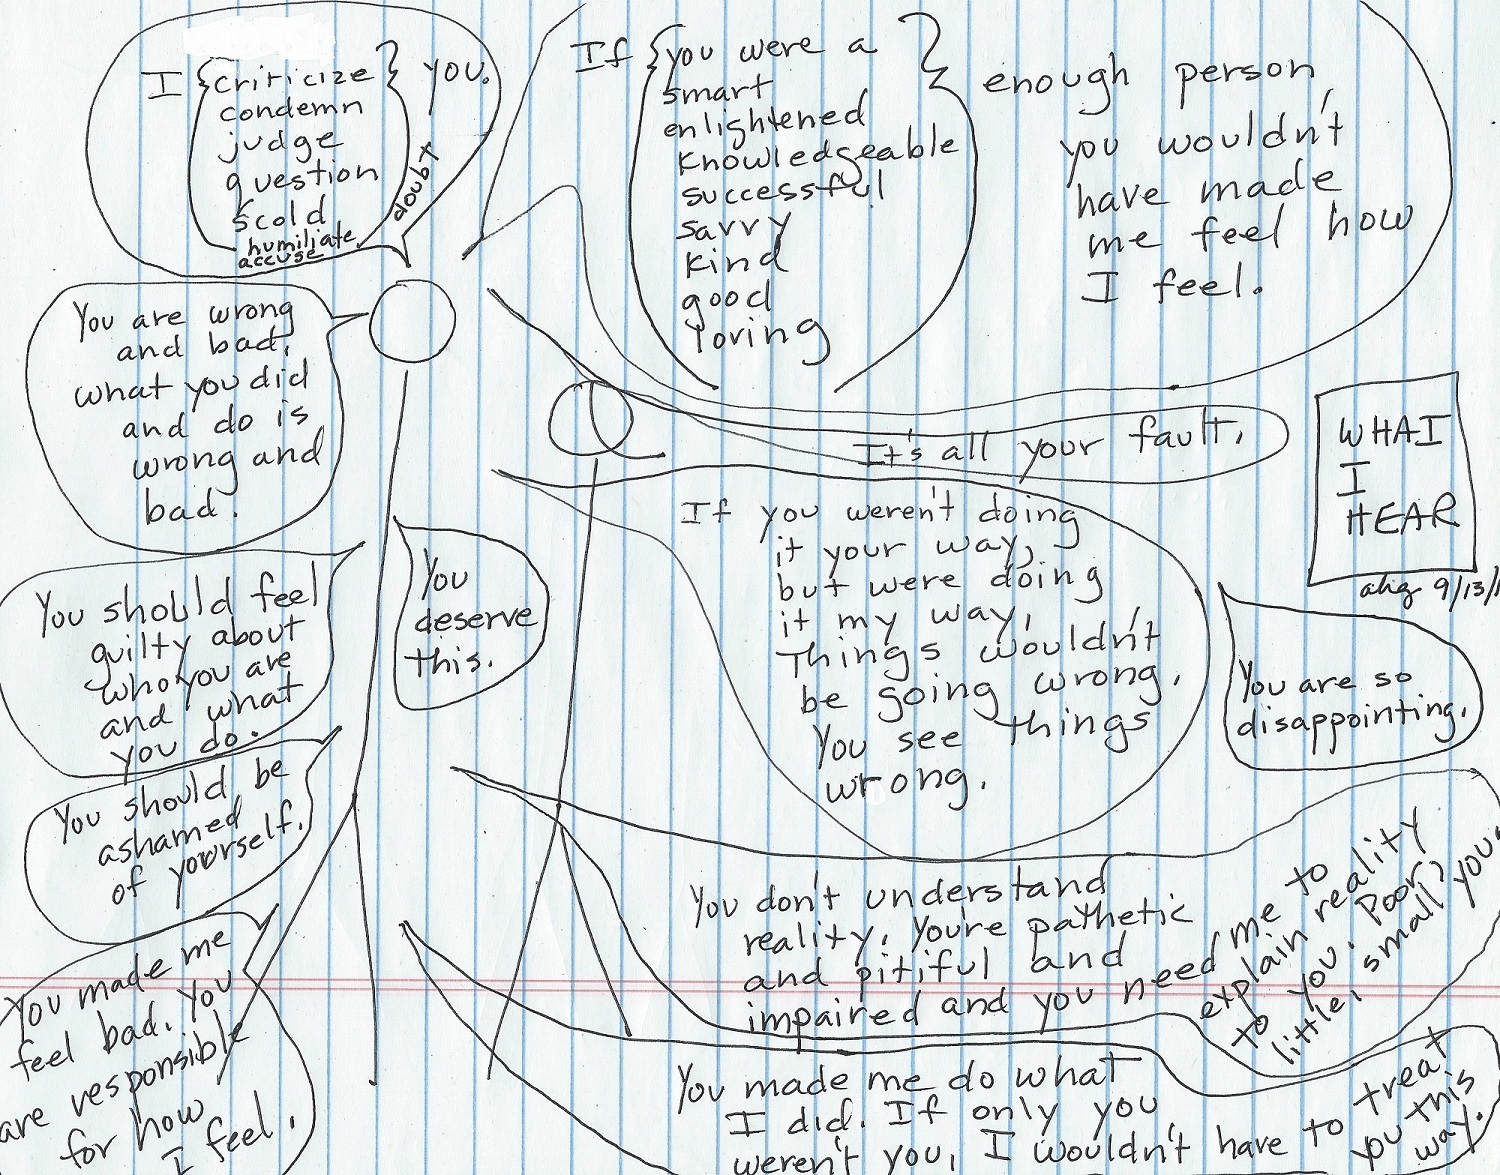 I { criticize } you.
condemn
judge
question
scold
humiliate
accuse
doubt
If { you were a }
smart
enlightened
knowledgeable
successful
savvy
kind
good
loving
enough person,
you wouldn't
have made
me feel how
I feel.
You are wrong
and bad,
what you did
and do is
wrong and
bad.
It's all your fault.
WHAT
I
HEAR
ahg 9/13/1
If you weren't doing
it your way,
but were doing
it my way,
things wouldn't
be going wrong.
You see things
wrong.
You
deserve
this.
You should feel
guilty about
who you are
and what
you do.
You are so
disappointing.
You should be
ashamed
of yourself.
You don't understand
reality. You're pathetic
and pitiful and
impaired and you need me to
explain reality
to you. Poor,
little, small you.
You made me
feel bad. You
are responsible
for how
I feel.
You made me do what
I did. If only you
weren't you, I wouldn't have to treat
you this
way.